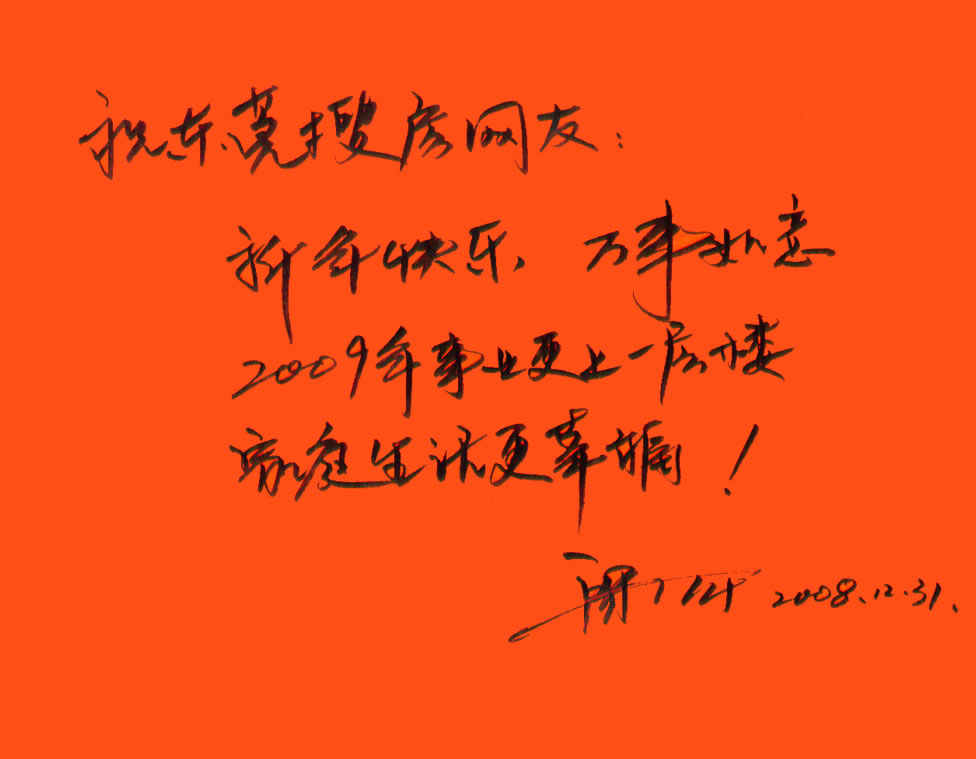 祝东莞搜房网友：
新年快乐、万事如意
2009年事业更上一层楼
家庭生活更幸福！
2008.12.31.